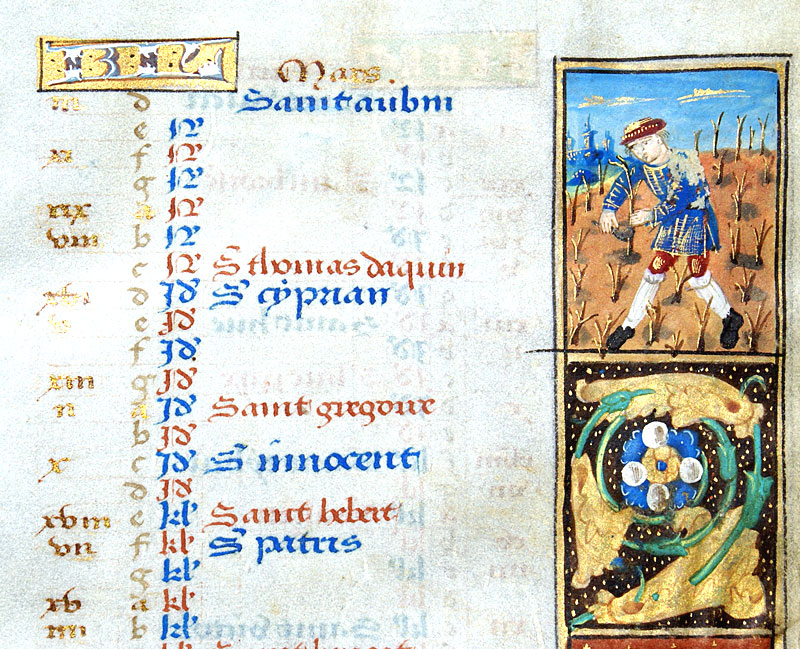 Mars.
iii d Saint aubin
e N
xi f N
g N
xix a N
viii b N
c N S thomas daquin
xvi d Id S cyprian
v e Id
f Id
xiii g Id
ii a Id Saint gregoire
b Id
x c Id S innocent
d Id
xviii e kl Saint hebert
vii f kl S patris
g kl
xv a kl
iiii b kl